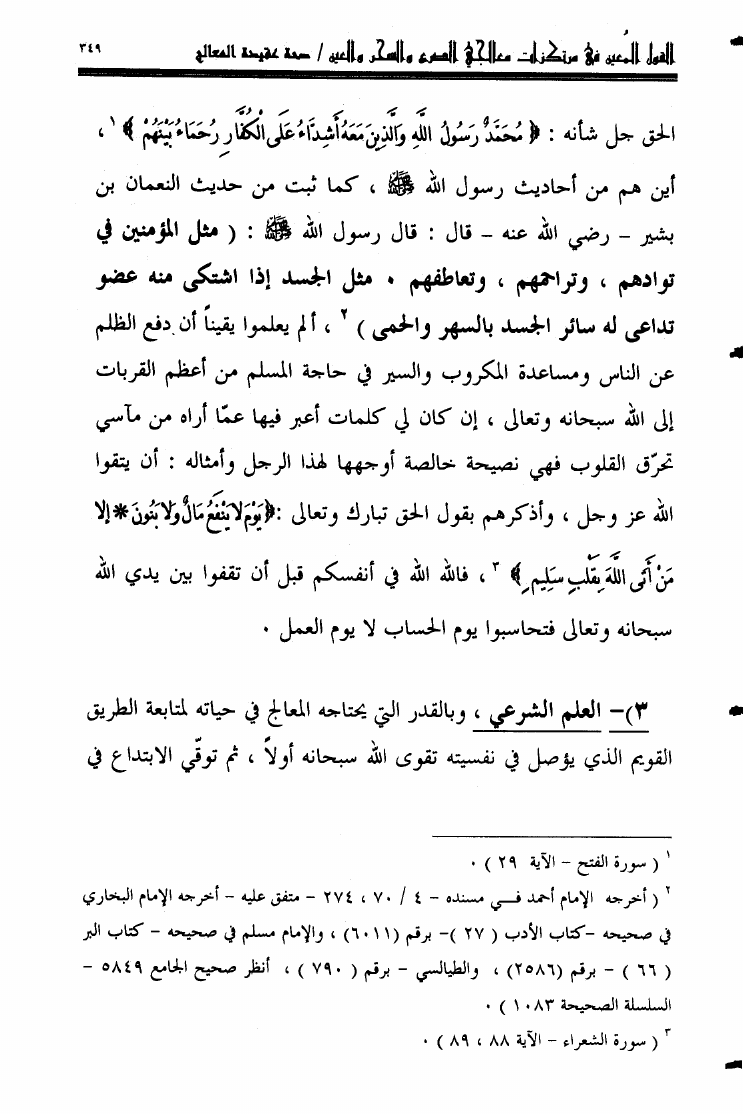 القول المُعين في مرتكزات معالجي الصرع والسحر والعين / صحة عقيدة المعالج ٣٤٩
الحق جل شأنه : ﴿ مُحَمَّدٌ رَسُولُ اللَّهِ وَالَّذِينَ مَعَهُ أَشِدَّاءُ عَلَى الْكُفَّارِ رُحَمَاءُ بَيْنَهُمْ ﴾ ١ ،
أين هم من أحاديث رسول الله ﷺ ، كما ثبت من حديث النعمان بن
بشير – رضي الله عنه – قال : قال رسول الله ﷺ : ( مثل المؤمنين في
توادهم ، وتراحمهم ، وتعاطفهم ٠ مثل الجسد إذا اشتكى منه عضو
تداعى له سائر الجسد بالسهر والحمى ) ٢ ، ألم يعلموا يقيناً أن دفع الظلم
عن الناس ومساعدة المكروب والسير في حاجة المسلم من أعظم القربات
إلى الله سبحانه وتعالى ، إن كان لي كلمات أعبر فيها عمّا أراه من مآسي
تحرّق القلوب فهي نصيحة خالصة أوجهها لهذا الرجل وأمثاله : أن يتقوا
الله عز وجل ، وأذكرهم بقول الحق تبارك وتعالى :﴿ يَوْمَ لا يَنْفَعُ مَالٌ وَلا بَنُونَ * إِلا
مَنْ أَتَى اللَّهَ بِقَلْبٍ سَلِيمٍ ﴾ ٣ ، فالله الله في أنفسكم قبل أن تقفوا بين يدي الله
سبحانه وتعالى فتحاسبوا يوم الحساب لا يوم العمل ٠
٣)– العلم الشرعي ، وبالقدر التي يحتاجه المعالج في حياته لمتابعة الطريق
القويم الذي يؤصل في نفسيته تقوى الله سبحانه أولاً ، ثم توقّي الابتداع في
١ ( سورة الفتح – الآية ٢٩ ) ٠
٢ ( أخرجه الإمام أحمد فـــي مسنده – ٤ / ٧٠ ، ٢٧٤ – متفق عليه – أخرجه الإمام البخاري
في صحيحه –كتاب الأدب ( ٢٧ )– برقم (٦٠١١) ، والإمام مسلم في صحيحه – كتاب البر
( ٦٦ ) – برقم (٢٥٨٦) ، والطيالسي – برقم ( ٧٩٠ ) ، أنظر صحيح الجامع ٥٨٤٩ –
السلسلة الصحيحة ١٠٨٣ ) ٠
٣ ( سورة الشعراء – الآية ٨٨ ، ٨٩ ) ٠